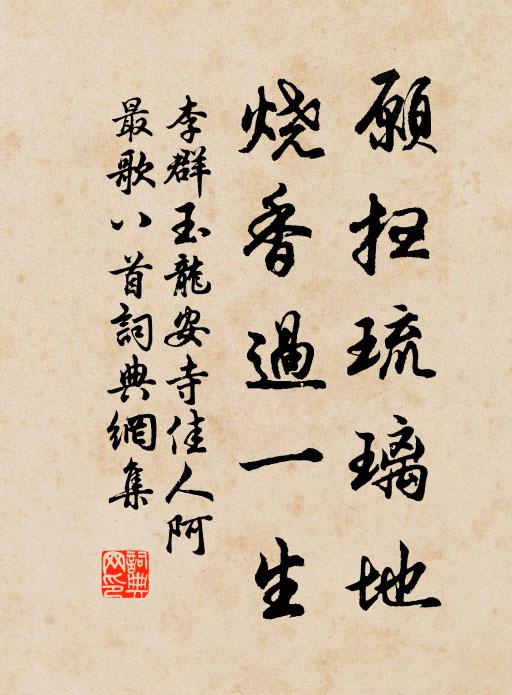 願扫琉璃地
烧香過一生
李群玉龍安寺佳人阿
最歌八首詞典網集
詞典网印